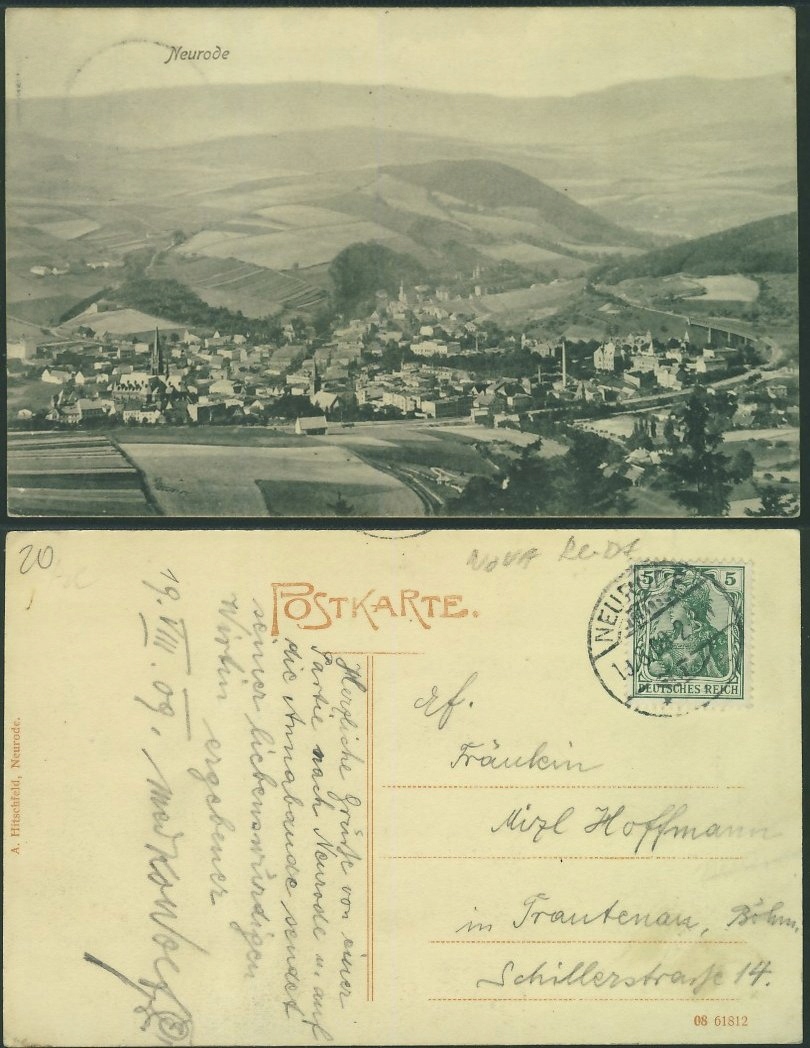 Neurode
20
Nova
POSTKARTE.
NEURODE
5 5
DEUTSCHES REICH
Herzliche Grüße von einer
Partie nach Neurode u. auf
die Annabaude sendet
seiner liebenswürdigen
Wirtin ergebener
19. VIII. 09.
Af.
Fräulein
Mizl Hoffmann
in Trautenau, Böhm.
Schillerstraße 14.
A. Hitschfeld, Neurode.
08 61812